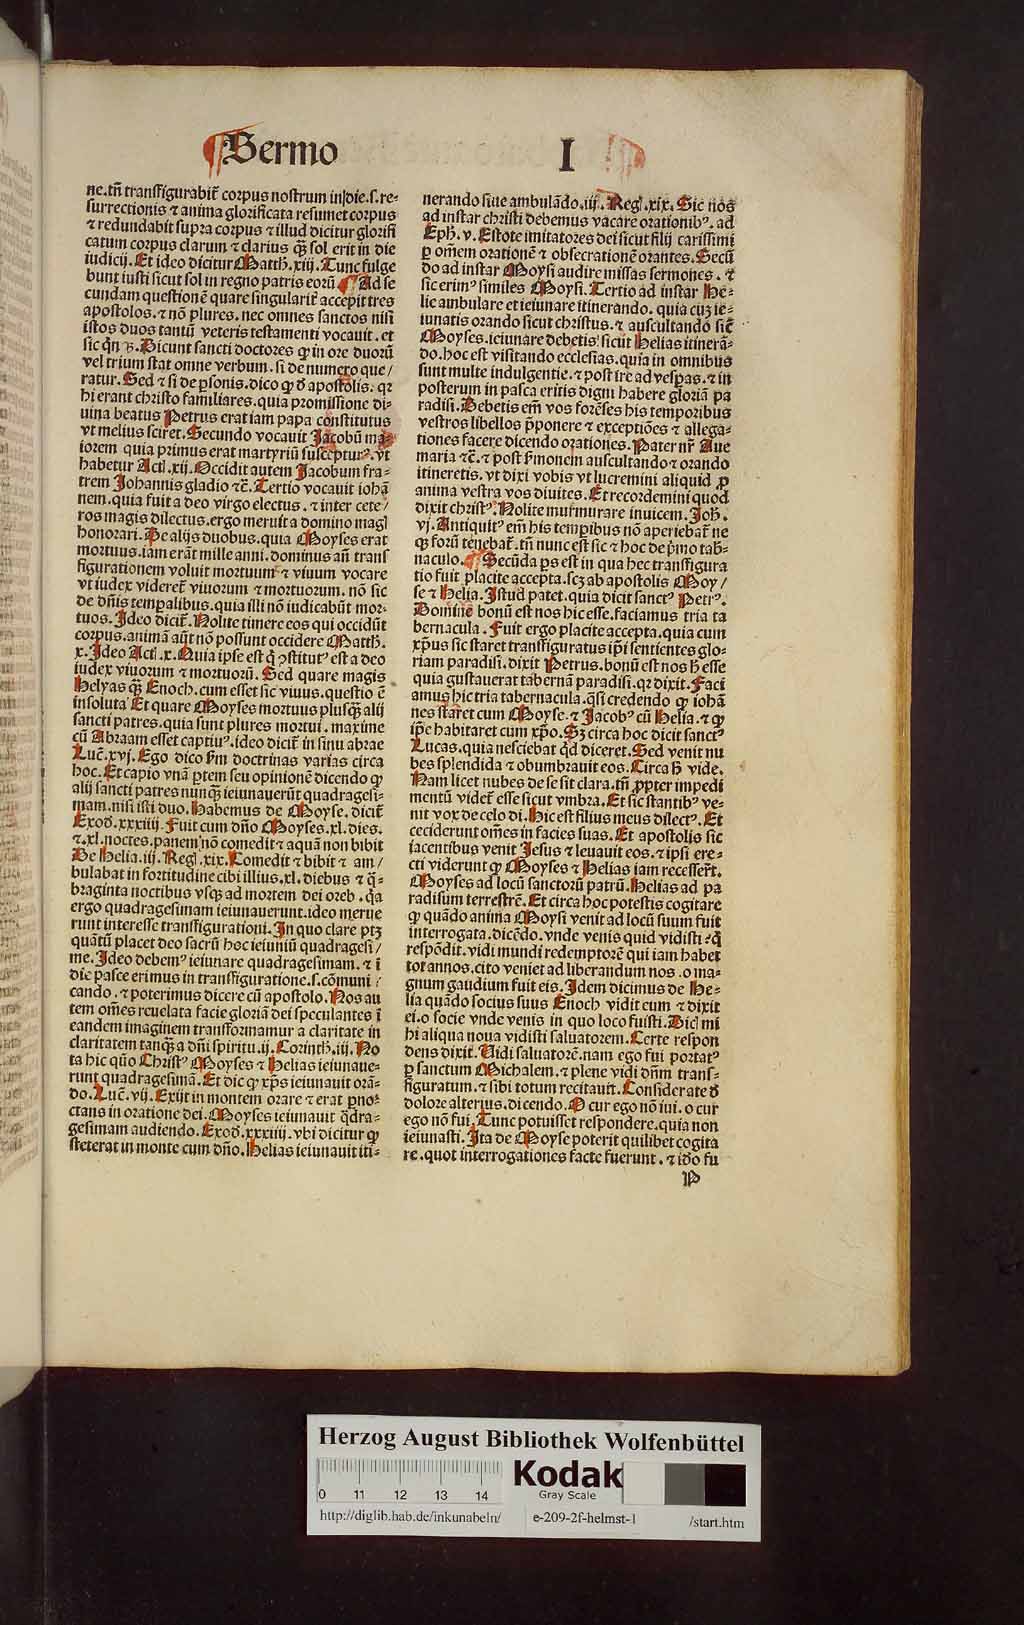 Sermo I
ne.tñ transfigurabit̃ corpus nostrum in die.s.re-
surrectionis ⁊ anima glorificata resumet corpus
⁊ redundabit supra corpus ⁊ illud dicitur glorifi
catum corpus clarum ⁊ clarius q̃ꝫ sol erit in die
iudicij. Et ideo dicitur Matth̃. xiij. Tunc fulge
bunt iusti sicut sol in regno patris eorũ ¶ Ad se
cundam questionẽ quare singularit̃ accepit tres
apostolos. ⁊ nõ plures. nec omnes sanctos nisi
istos duos tantũ veteris testamenti vocauit. et
sic q̃n Dicunt sancti doctores ꝙ in ore duorũ
vel trium stat omne verbum. si de numero que/
ratur. Sed ⁊ si de ꝑsonis. dico ꝙ đ apostolis. qꝛ
hi erant christo familiares. quia promissione di-
uina beatus Petrus erat iam papa constitutus
vt melius sciret. Secundo vocauit Jacobũ ma-
iorem quia primus erat martyriũ suscepturꝰ. vt
habetur Act. xij. Occidit autem Jacobum fra-
trem Johannis gladio ⁊c̃. Tertio vocauit iohã
nem. quia fuit a deo virgo electus. ⁊ inter cete/
ros magis dilectus. ergo meruit a domino magl
honorari. De alijs duobus. quia Moyses erat
mortuus. iam erãt mille anni. dominus añ trans
figurationem voluit mortuum ⁊ viuum vocare
vt iudex videret̃ viuorum ⁊ mortuorum. nõ sic
de dñis temꝑalibus. quia illi nõ iudicabũt mor-
tuos. Ideo dicit̃. Nolite timere eos qui occidũt
corpus. animã aũt nõ possunt occidere Matth̃.
x. Ideo Act. x. Quia ipse est q̃ ↄstitutꝰ est a deo
iudex viuorum ⁊ mortuorũ. Sed quare magis
Helyas q̃ꝫ Enoch. cum esset sic viuus. questio ẽ
insoluta Et quare Moyses mortuus plusq̃ꝫ alij
sancti patres. quia sunt plures mortui. maxime
cũ Abraam esset captiuꝰ. ideo dicit̃ in sinu abrae
Luc̃. xvj. Ego dico ẜm doctrinas varias circa
hoc. Et capio vnã ꝑtem seu opinionẽ dicendo ꝙ
alij sancti patres nunq̃ꝫ ieiunauerũt quadragesi-
mam. nisi isti duo. Habemus de Moyse. dicit̃
Exođ. xxxiiij. Fuit cum dño Moyses. xl. dies.
⁊. xl. noctes. panem nõ comedit ⁊ aquã non bibit
De Helia. iij. Regl. xix. Comedit ⁊ bibit ⁊ am/
bulabat in fortitudine cibi illius. xl. diebus ⁊ q̃-
braginta noctibus vsqꝫ ad mortem dei oreb. q̃a
ergo quadragesimam ieiunauerunt. ideo merue
runt interesse transfigurationi. In quo clare ptꝫ
quãtũ placet deo sacrũ hoc ieiuniũ quadragesi/
me. Ideo debemꝰ ieiunare quadragesimam. ⁊ ĩ
die pasce erimus in transfiguratione. s. cõmuni
cando. ⁊ poterimus dicere cũ apostolo. Nos au
tem om̃es reuelata facie gloriã dei speculantes ĩ
eandem imaginem transformamur a claritate in
claritatem tanq̃ꝫ a dñi spiritu. ij. Corinth̃. iij. No
ta hic quõ Christꝰ Moyses ⁊ Helias ieiunaue-
runt quadragesimã. Et dic ꝙ xp̃s ieiunauit orã-
do. Luc̃. vij. Exijt in montem orare ⁊ erat ꝑno-
ctans in oratione dei. Moyses ieiunauit q̃dra-
gesimam audiendo. Exođ. xxxiiij. vbi dicitur ꝙ
steterat in monte cum dño. Helias ieiunauit iti-
nerando siue ambulãdo. iij. Regl. xix. Sic nos
ad instar christi debemus vacare orationibꝰ. ad
Eph̃. v. Estote imitatores dei sicut filij carissimi
ꝑ om̃em orationẽ ⁊ obsecrationẽ orantes. Secũ
do ad instar Moysi audire missas sermones. ⁊
sic erimꝰ similes Moysi. Tertio ad instar He-
lie ambulare et ieiunare itinerando. quia cuꝫ ie-
iunatis orando sicut christus. ⁊ auscultando sic̃
Moyses. ieiunare debetis sicut Helias itinerã-
do. hoc est visitando ecclesias. quia in omnibus
sunt multe indulgentie. ⁊ post ire ad vesꝑas. ⁊ in
posterum in pasca eritis digni habere gloriã pa
radisi. Debetis em̃ vos forẽses his temporibus
vestros libellos p̃ponere ⁊ exceptiões ⁊ allega-
tiones facere dicendo orationes. Pater nr̃ Aue
maria ⁊c̃. ⁊ post ẜmonem auscultando ⁊ orando
itineretis. vt dixi vobis vt lucremini aliquid ꝓ
anima vestra vos diuites. Et recordemini quod
dixit christꝰ. Nolite murmurare inuicem. Joh̃.
vj. Antiquitꝰ em̃ his temꝑibus nõ aperiebat̃ ne
qꝫ forũ tenebat̃. tñ nunc est sic ⁊ hoc de p̃mo tab-
naculo. ¶ Secũda ꝑs est in qua hec transfigura
tio fuit placite accepta. scꝫ ab apostolis Moy/
se ⁊ Helia. Istud patet. quia dicit sanctꝰ Petrꝰ.
Domine bonũ est nos hic esse. faciamus tria ta
bernacula. Fuit ergo placite accepta. quia cum
xp̃us sic staret transfiguratus ip̃i sentientes glo-
riam paradisi. dixit Petrus. bonũ est nos h̃ esse
quia gustauerat tabernã paradisi. qꝛ dixit. Faci
amus hic tria tabernacula. q̃si credendo ꝙ iohã
nes staret cum Moyse. ⁊ Jacobꝰ cũ Helia. ⁊ ꝙ
ip̃e habitaret cum xp̃o. Sꝫ circa hoc dicit sanctꝰ
Lucas. quia nesciebat q̃d diceret. Sed venit nu
bes splendida ⁊ obumbrauit eos. Circa h̃ vide.
Nam licet nubes de se sit clara. tñ ꝓpter impedi
mentũ videt̃ esse sicut vmbra. Et sic stantibꝰ ve-
nit vox de celo di. Hic est filius meus dilectꝰ. Et
ceciderunt om̃es in facies suas. Et apostolis sic
iacentibus venit Jesus ⁊ leuauit eos. ⁊ ipsi ere-
cti viderunt ꝙ Moyses ⁊ Helias iam recesser̃t.
Moyses ad locũ sanctorũ patrũ. Helias ad pa
radisum terrestrẽ. Et circa hoc potestis cogitare
ꝙ quãdo anima Moysi venit ad locũ suum fuit
interrogata. dicẽdo. vnde venis quid vidisti ⁊ q̃
respõdit. vidi mundi redemptorẽ qui iam habet
tot annos. cito veniet ad liberandum nos. o ma-
gnum gaudium fuit eis. Idem dicimus de He-
lia quãdo socius suus Enoch vidit eum ⁊ dixit
ei. o socie vnde venis in quo loco fuisti. Dic mi
hi aliqua noua vidisti saluatorem. Certe respon
dens dixit. Vidi saluatorẽ. nam ego fui portatꝰ
ꝑ sanctum Michalem. ⁊ plene vidi dñm trans-
figuratum. ⁊ sibi totum recitauit. Considerate đ
dolore alterius. dicendo. O cur ego nõ iui. o cur
ego nõ fui. Tunc potuisset respondere. quia non
ieiunasti. Ita de Moyse poterit quilibet cogita
re. quot interrogationes facte fuerunt. ⁊ iđo fu
P
Herzog August Bibliothek Wolfenbüttel
0 11 12 13 14
Kodak
Gray Scale
http://diglib.hab.de/inkunabeln/ e-209-2f-helmst-1 /start.htm